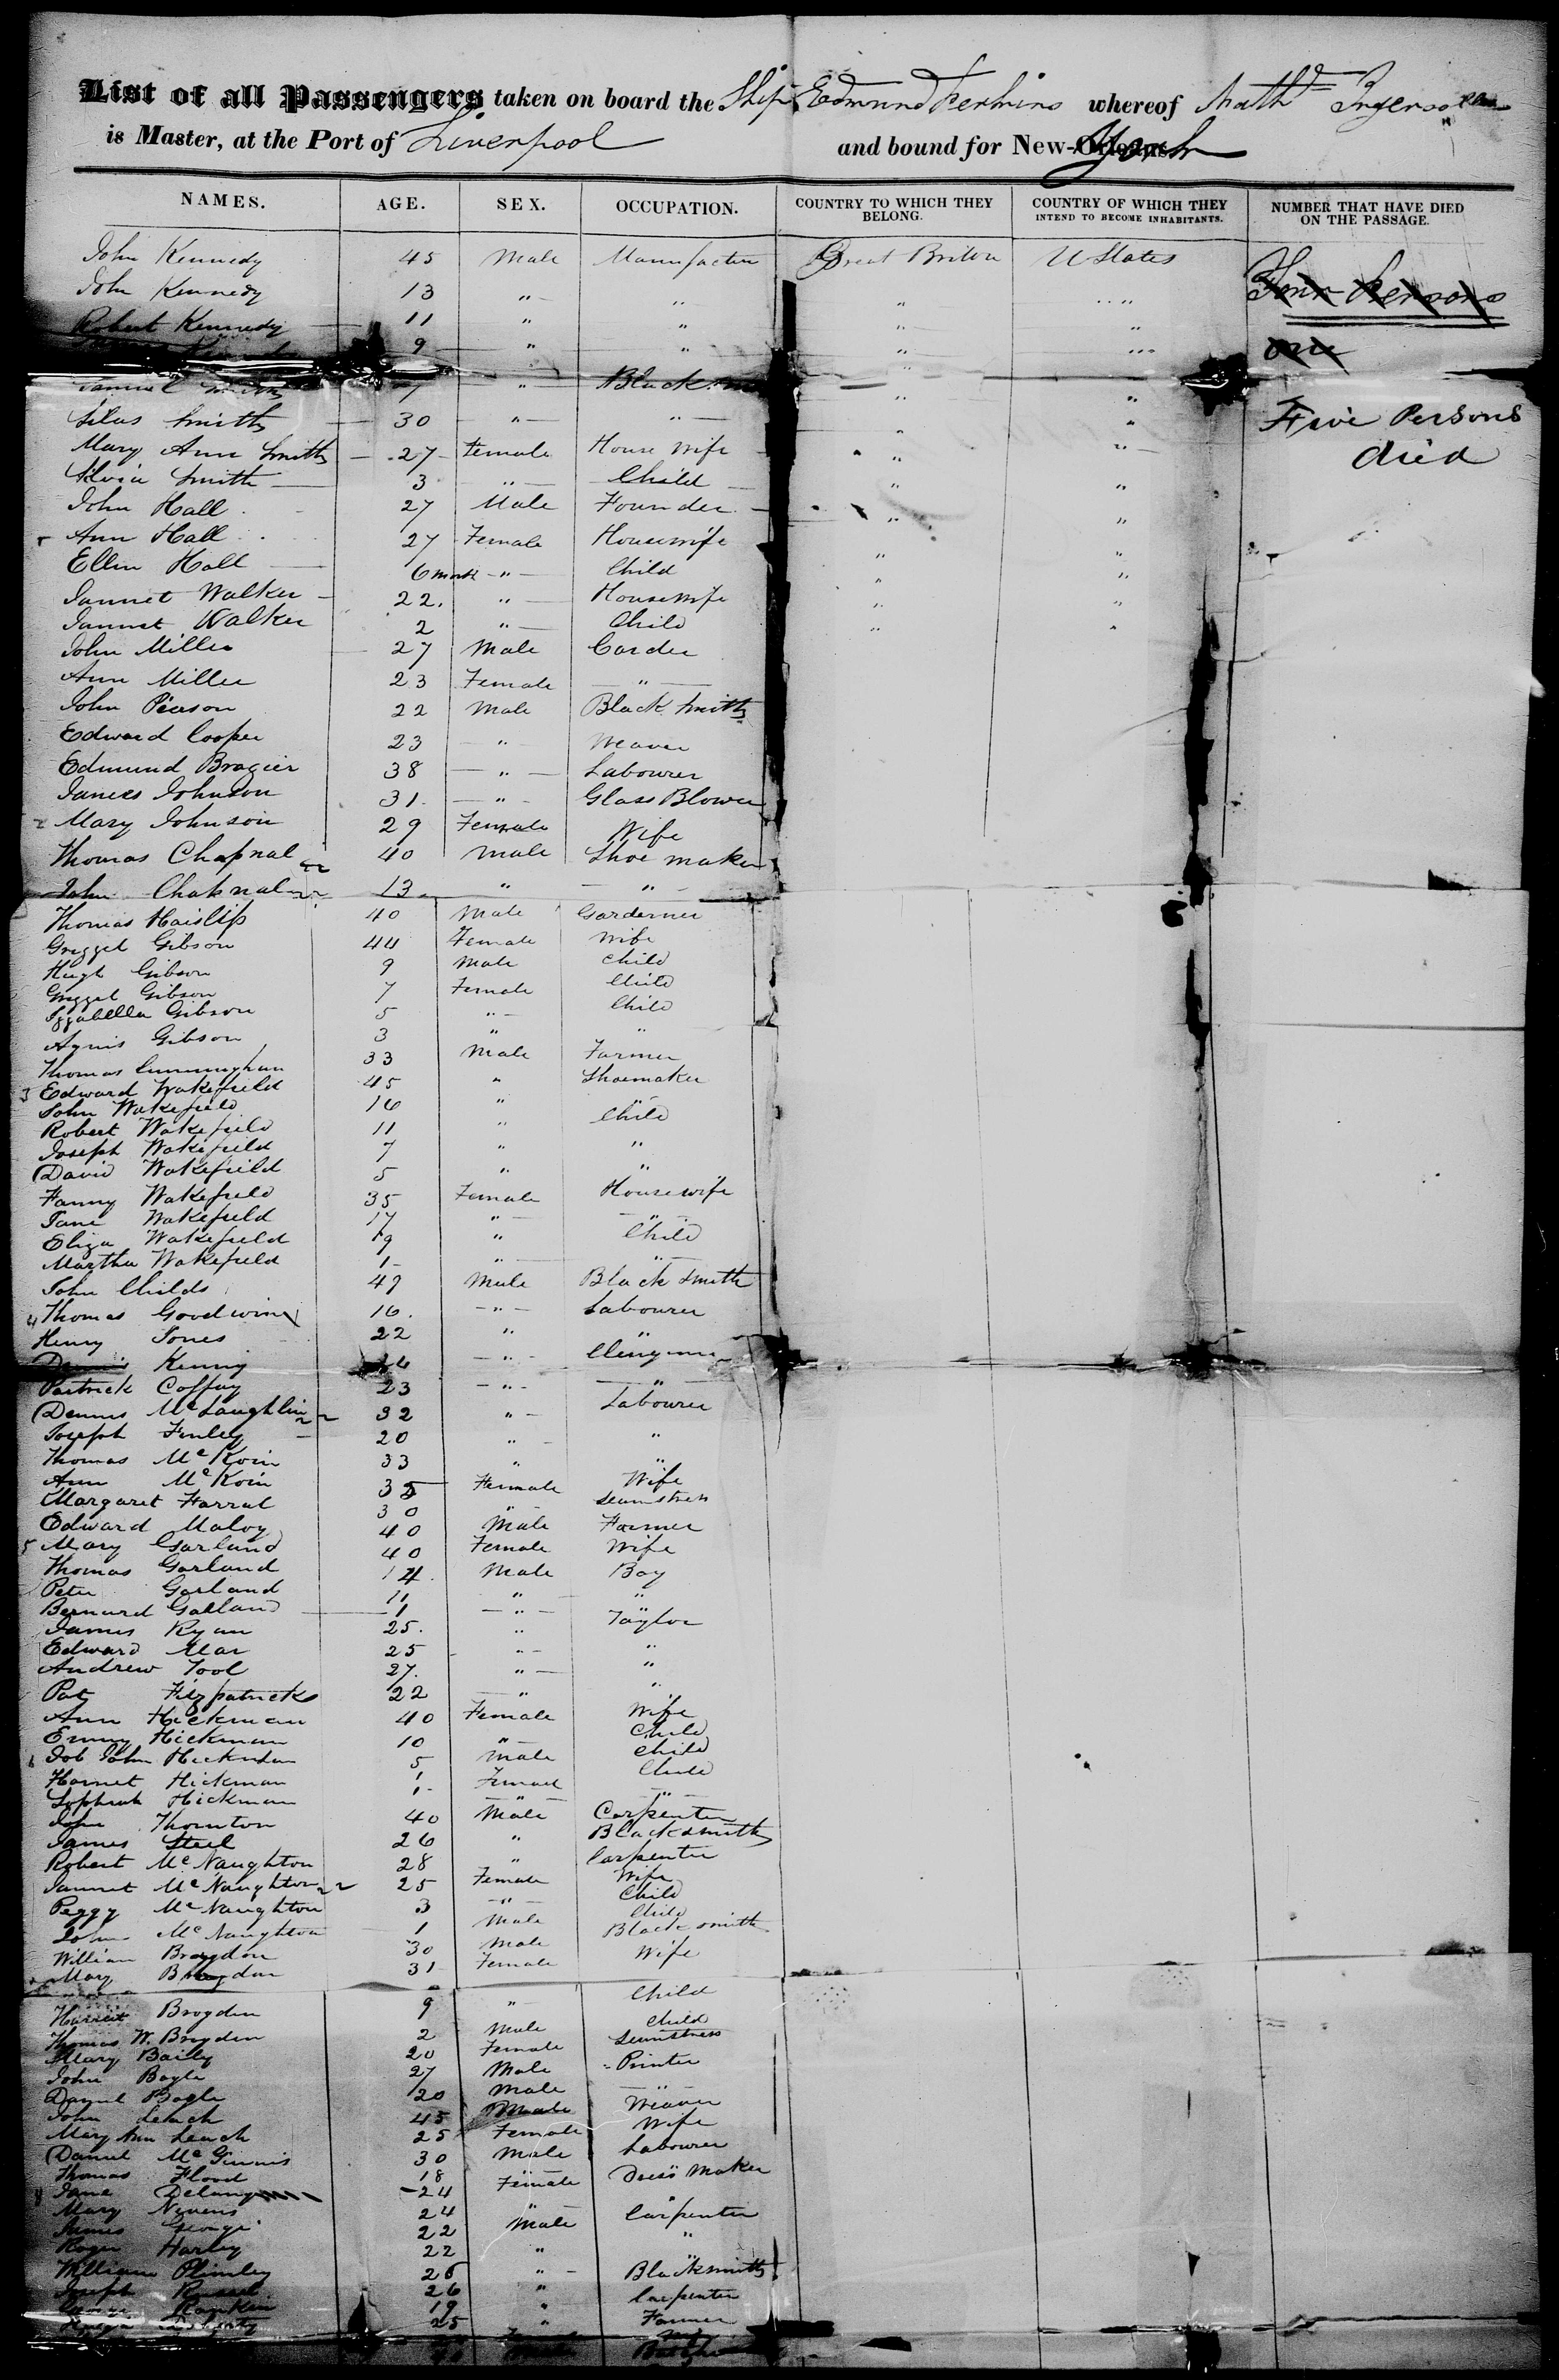 List of all Passengers taken on board the Ship Edmund Perkins whereof Nathd Ingersoll
is Master, at the Port of Liverpool and bound for New-York
NAMES. AGE. SEX. OCCUPATION. COUNTRY TO WHICH THEY BELONG. COUNTRY OF WHICH THEY INTEND TO BECOME INHABITANTS. NUMBER THAT HAVE DIED ON THE PASSAGE.
John Kennedy 45 Male Manufactur Great Briton U States
John Kennedy 13 " " " " Four Persons
Robert Kennedy 11 " " " "
9 " " " " one
Samuel 7 " Black
Silas Smith 30 " " " " Five Persons
Mary Ann Smith 27 Female House Wife " " died
Silvia Smith 3 " Child " "
John Hall 27 Male Founder " "
Ann Hall 27 Female Housewife " "
Ellen Hall 6 month " Child " "
Jannet Walker 22 " Housewife " "
Jannet Walker 2 " Child " "
John Miller 27 Male Carder
Ann Miller 23 Female "
John Pierson 22 Male Black Smith
Edward Cooper 23 " Weaver
Edmund Brazier 38 " Labourer
James Johnson 31 " Glass Blower
2 Mary Johnson 29 Female Wife
Thomas Chapnal 40 Male Shoe maker
John Chapnal 13 " "
Thomas Haislip 40 Male Garderner
Grizzel Gibson 44 Female Wife
Hugh Gibson 9 Male Child
Grizzel Gibson 7 Female Child
Izzabella Gibson 5 " Child
Agnis Gibson 3 " "
Thomas Cunningham 33 Male Farmer
3 Edward Wakefield 45 " Shoemaker
John Wakefield 16 " "
Robert Wakefield 11 " Child
Joseph Wakefield 7 " "
David Wakefield 5 " "
Fanny Wakefield 35 Female Housewife
Jane Wakefield 17 " "
Eliza Wakefield 9 " Child
Martha Wakefield 1 " "
John Childs 47 Male Black Smith
4 Thomas Goodwin 16 " Labourer
Henry Jones 22 " "
Kenny " Clergyman
Patrick Coffay 23 " "
Dennis McLaughlin 32 " Labourer
Joseph Finley 20 " "
Thomas McKoin 33 " "
Ann McKoin 35 Female Wife
Margaret Farral 30 " Seamstress
Edward Maloy 40 Male Farmer
5 Mary Garland 40 Female Wife
Thomas Garland 14 Male Boy
Peter Garland 11 " "
Bernard Galland 1 " "
James Ryan 25 " Taylor
Edward Mar 25 " "
Andrew Tool 27 " "
Pat Fitzpatrick 22 " "
Ann Hickman 40 Female Wife
Emmy Hickman 10 " Child
6 Job John Hickman 5 Male Child
Harnet Hickman 1 Femael Child
Sophiah Hickman 1 " "
John Thornton 40 Male Carpenter
James Steel 26 " Blacksmith
Robert McNaughton 28 " Carpenter
Jannet McNaughton 25 Female Wife
Peggy McNaughton 3 " Child
John McNaughton 1 Male Child
William Brogdon 30 Male Black smith
Mary Brogdon 31 Female Wife
Harriet Brogden 9 " Child
Thomas W. Brogden 2 Male Child
Mary Baily 20 Female Seamstress
John Bogle 27 Male Printer
Daniel Bogle 20 Male "
John Leach 45 Male Weaver
Mary Ann Leach 25 Female Wife
Daniel McGinnis 30 Male Labourer
Thomas Flood 18 " "
8 Jane Delany 24 Female Dress Maker
Mary Nevens 24 " "
James George 22 Male Carpenter
Roger Harley 22 " "
William Plimley 26 " Blacksmith
Joseph Russel 26 " Carpenter
Rankin 19 " Farmer
25 "